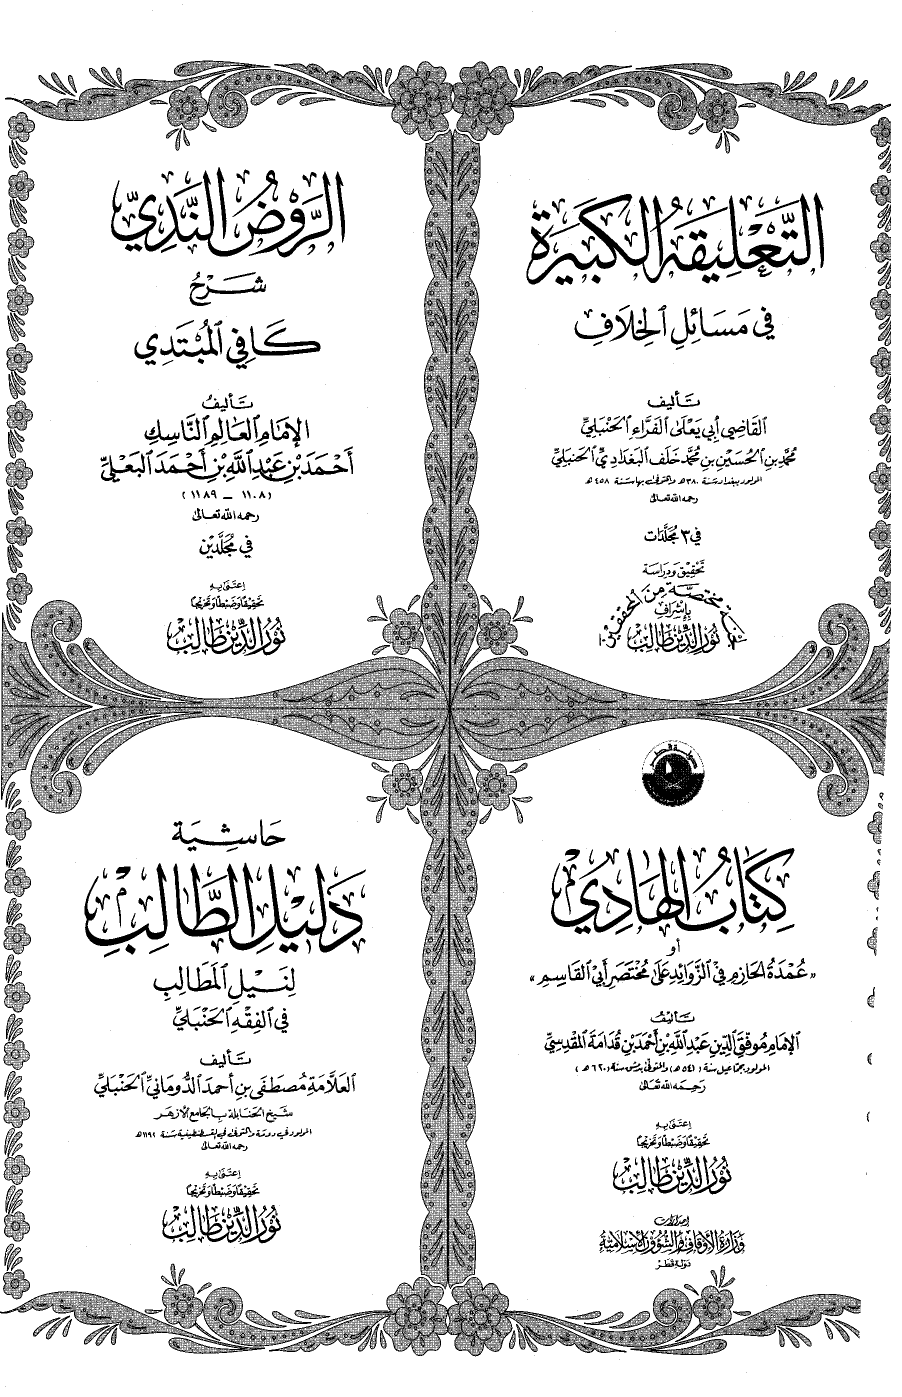 التَّعْلِيقَةُ الكَبِيرَة
في مَسَائِلِ الخِلَافِ
تَأليف
القَاضِي أَبِي يَعْلَى الفَرَّاءِ الحَنْبَلِيِّ
مُحَمَّد بن الحُسَيْنِ بنِ مُحَمَّد خَلَف البَغْدَادِيِّ الحَنْبَلِيِّ
المولود ببغداد سنة ٣٨٠ هـ والمتوفى بها سنة ٤٥٨ هـ
رحمه الله تعالى
في ٣ مُجَلَّدَات
تحقيق ودراسة
لجنة مختصة من المحققين
بإشراف
نُور الدِّين طَالِب
الرَّوْضُ النَّدِيّ
شَرْحُ
كَافِي المُبْتَدِي
تَأليفُ
الإِمَامِ العَالِمِ النَّاسِكِ
أَحْمَدَ بْنِ عَبْدِ اللَّهِ بْنِ أَحْمَدَ البَعْلِيِّ
(١١٠٨ - ١١٨٩)
رحمه الله تعالى
في مُجَلَّدَيْن
اعتنى به
تحقيقًا وضبطًا وتخريجًا
نُور الدِّين طَالِب
دولة قطر
كِتَابُ الهَادِي
أو
«عُمْدَةُ الحَازِمِ في الزَّوَائِدِ عَلَى مُخْتَصَرِ أَبِي القَاسِمِ»
تَأليفُ
الإِمَامِ مُوَفَّقِ الدِّينِ عَبْدِ اللَّهِ بْنِ أَحْمَدَ بْنِ قُدَامَةَ المَقْدِسِيِّ
المولود بجمّاعيل سنة (٥٤١ هـ) والمتوفى بدمشق سنة (٦٢٠ هـ)
رحمه الله تعالى
اعتنى به
تحقيقًا وضبطًا وتخريجًا
نُور الدِّين طَالِب
إصدارات
وزارة الأوقاف والشؤون الإسلامية
دولة قطر
حَاشِيَة
دَلِيلِ الطَّالِبِ
لِنَيْلِ المَطَالِبِ
في الفِقْهِ الحَنْبَلِيِّ
تَأليف
العَلَّامَةِ مُصْطَفَى بن أَحمدَ الدُّومَانِيِّ الحَنْبَلِيِّ
شيخ الحنابلة بالجامع الأزهر
المولود في دومة والمتوفى في القسطنطينية سنة ١١٩٢ هـ
رحمه الله تعالى
اعتنى به
تحقيقًا وضبطًا وتخريجًا
نُور الدِّين طَالِب